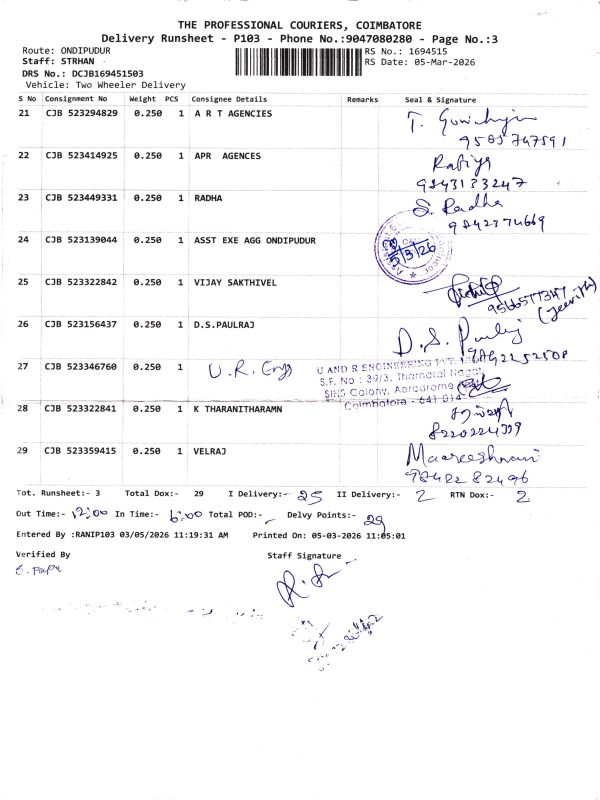 THE PROFESSIONAL COURIERS, COIMBATORE
Delivery Runsheet - P103 - Phone No.:9047080280 - Page No.:3
Route: ONDIPUDUR RS No.: 1694515
Staff: STRHAN RS Date: 05-Mar-2026
DRS No.: DCJB169451503
Vehicle: Two Wheeler Delivery
S No Consignment No Weight PCS Consignee Details Remarks Seal & Signature
21 CJB 523294829 0.250 1 A R T AGENCIES
22 CJB 523414925 0.250 1 APR AGENCES Rafiya
9843133247
23 CJB 523449331 0.250 1 RADHA S. Radha
9842374669
24 CJB 523139044 0.250 1 ASST EXE AGG ONDIPUDUR
25 CJB 523322842 0.250 1 VIJAY SAKTHIVEL
26 CJB 523156437 0.250 1 D.S.PAULRAJ D.S. Paulraj
27 CJB 523346760 0.250 1 U.R. Engg U AND R ENGINEERING PVT.
S.F. No : 39/3, Tharnatai Nagar
SIHS Colony, Aerodrome
Coimbatore - 641 014
28 CJB 523322841 0.250 1 K THARANITHARAMN
8220224339
29 CJB 523359415 0.250 1 VELRAJ Maareeshwari
9842282496
Tot. Runsheet:- 3 Total Dox:- 29 I Delivery:- 25 II Delivery:- 2 RTN Dox:- 2
Out Time:- 12:00 In Time:- 6:00 Total POD:- Delvy Points:- 29
Entered By :RANIP103 03/05/2026 11:19:31 AM Printed On: 05-03-2026 11:05:01
Verified By Staff Signature